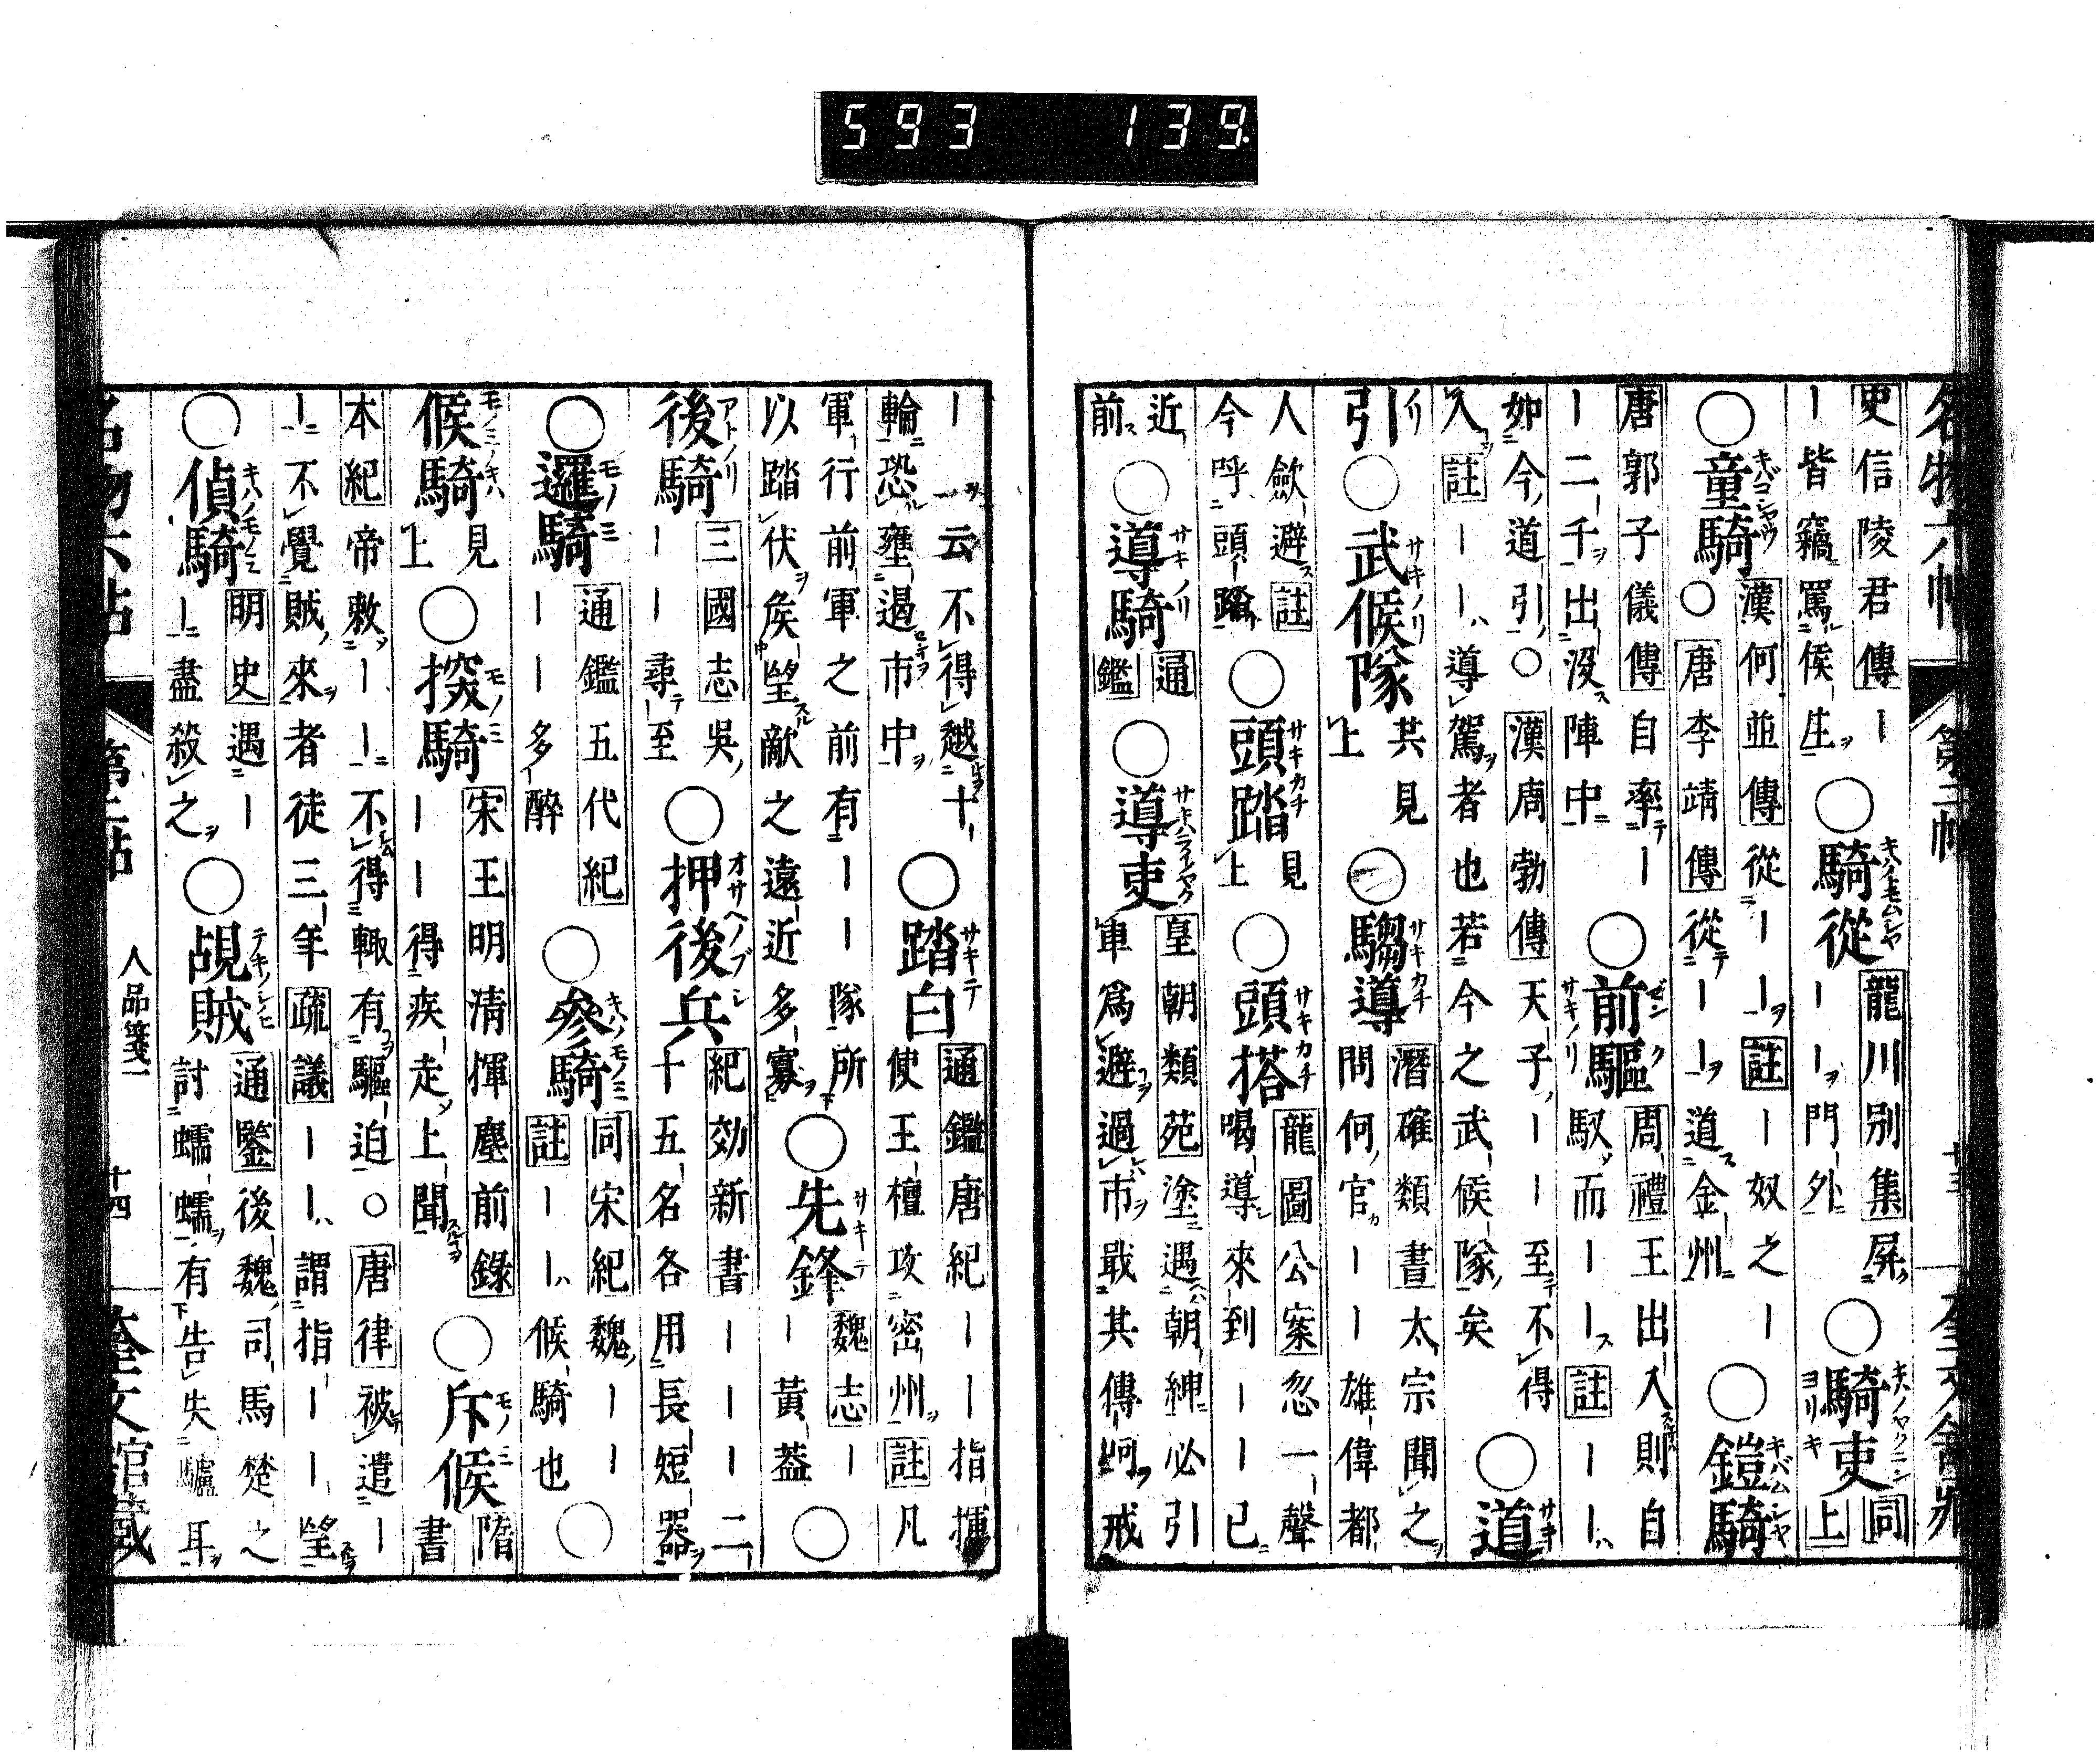 593 139
史信陵君傳｜
｜皆竊罵侯生
○騎從
龍川別集屏
｜｜門外
○騎吏
同上
○童騎
漢何並傳從｜｜註｜奴之｜
○唐李靖傳從｜｜道金州
○鎧騎
唐郭子儀傳自率｜
｜二千出沒陣中
○前驅
周禮王出入則自
馭而｜｜註｜｜
如今道引○漢周勃傳天子｜｜至不得
入註｜｜導駕者也若今之武候隊矣
○道
引
○武候隊
共見上
○騶導
潛確類書太宗聞之
問何官｜｜雄偉都
人歛避註
今呼頭踏
○頭踏
見上
○頭搭
龍圖公案忽一聲
喝導來到｜｜已
近前
○導騎
通鑑
○導吏
皇朝類苑塗遇朝紳必引
車爲避過市戢其傳呵戒
｜云不得越十
輪恐壅遏市中
○踏白
通鑑唐紀｜｜指揮
使王檀攻密州註凡
軍行前軍之前有｜｜隊所
以踏伏候望敵之遠近多寡
○先鋒
魏志｜
｜黃蓋
○
後騎
三國志吳
｜｜尋至
○押後兵
紀効新書｜｜｜二
十五名各用長短器
○邏騎
通鑑五代紀
｜｜多醉
○參騎
同宋紀魏｜｜
註｜｜候騎也
○
候騎
見上
○探騎
宋王明淸揮塵前錄
｜｜得疾走上聞
○斥候
隋書
本紀帝敕｜｜不得輙有驅迫○唐律被遣｜
｜不覺賊來者徒三年疏議｜｜謂指｜｜望
○偵騎
明史遇｜
｜盡殺之
○覘賊
通鑒後魏司馬楚之
討蠕蠕有告失驢耳
第二帖
人品箋一
十四